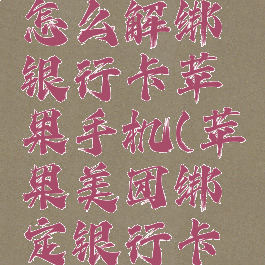 怎么解绑
银行卡苹
果手机(苹
果美团绑
定银行卡